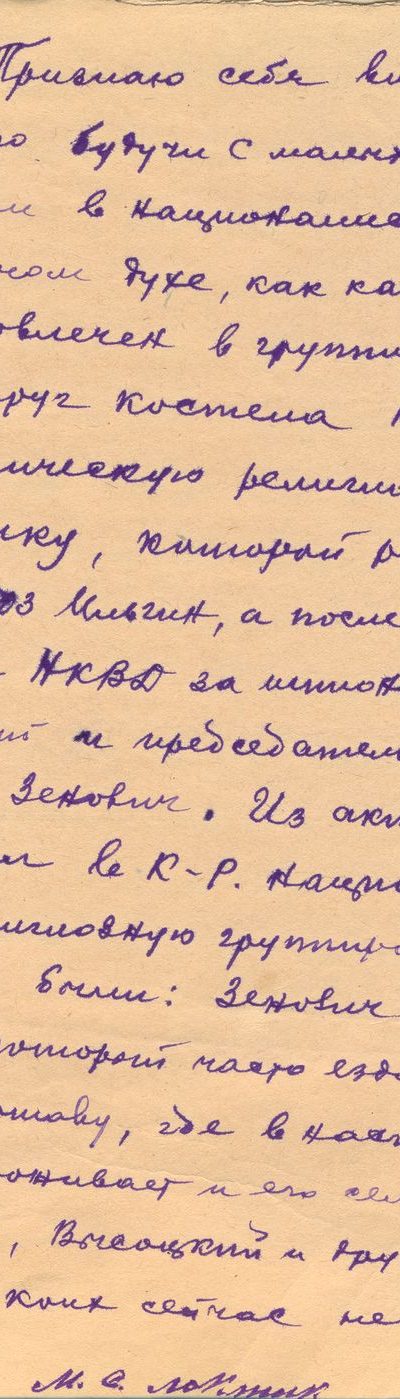 Признаю себя ви
о будучи с малент
м в национали
ном духе, как ка
овлечен в группи
руг костела
ическую религио
ику, которой р
оз Ильгин, а после
НКВД за шпион
ий и председател
Зенович. Из ак
м в К-Р. наци
игиозную группиро
были: Зенович
который часто езд
шаву, где в наст
оживает и его се
, Высоцкий и дру
коих сейчас не
М. С.